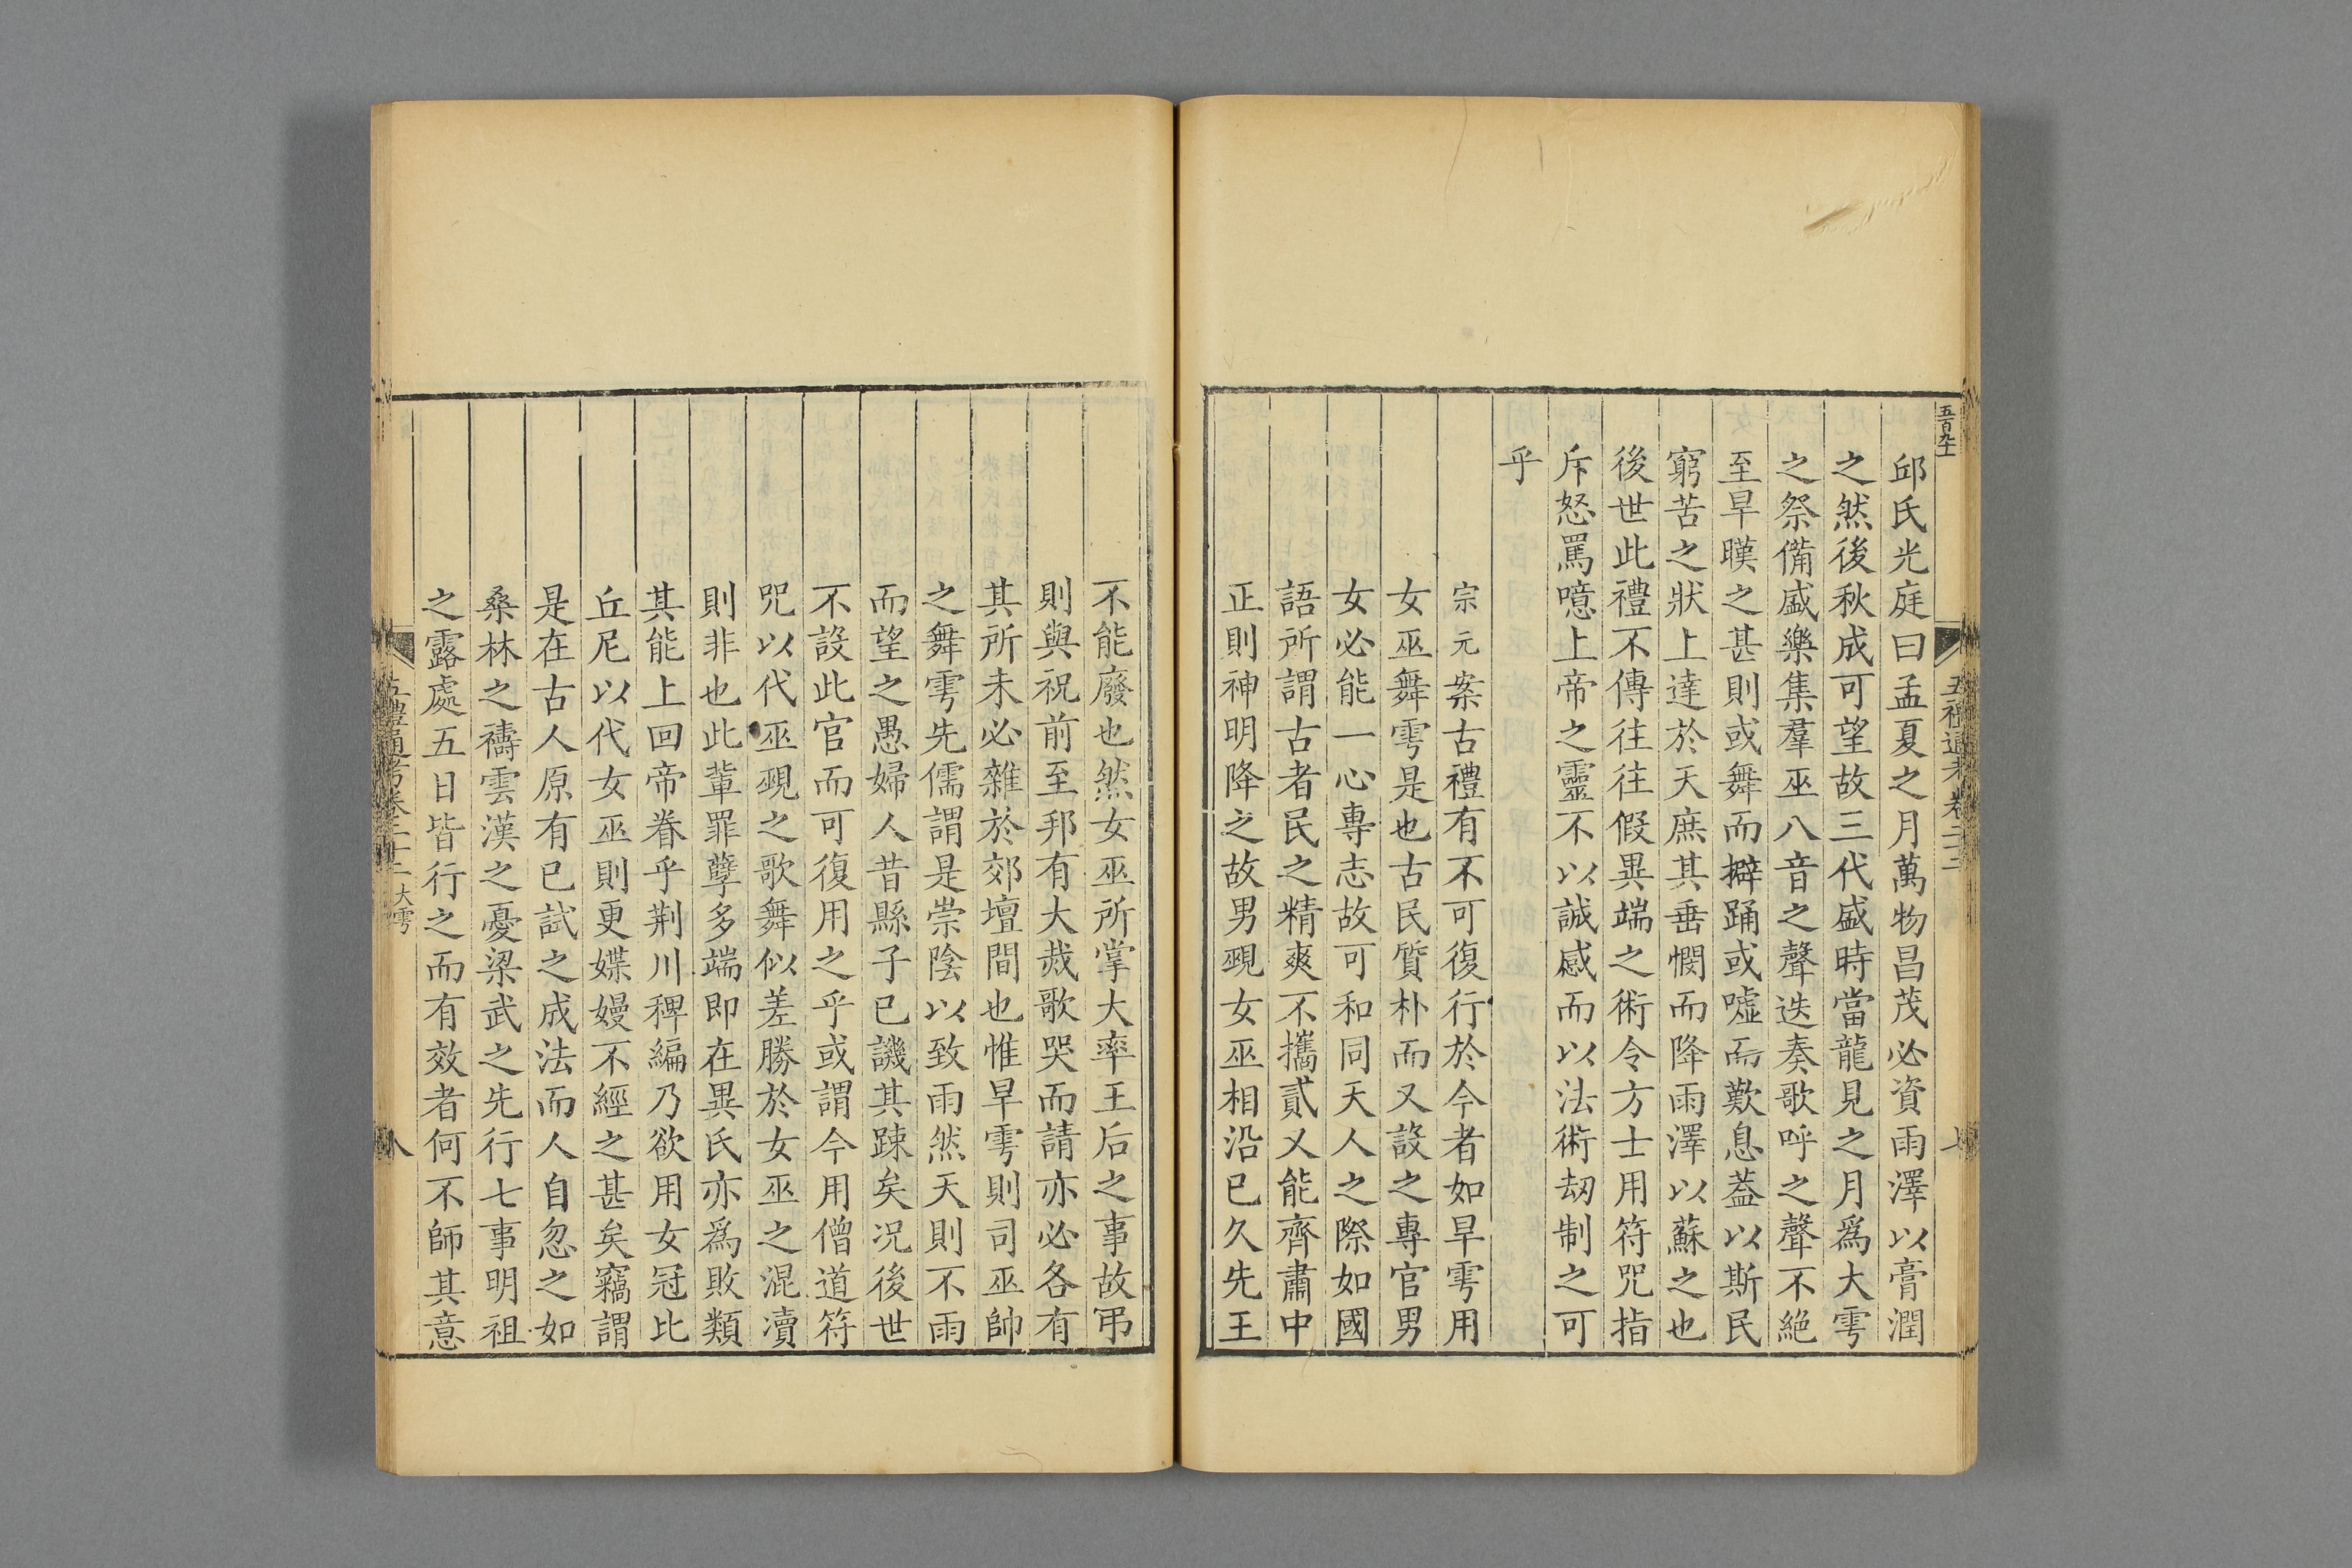 五百九十
五禮通考卷二十二
七
邱氏光庭曰孟夏之月萬物昌茂必資雨澤以膏潤
之然後秋成可望故三代盛時當龍見之月爲大雩
之祭備盛樂集羣巫八音之聲迭奏歌呼之聲不絶
至旱暵之甚則或舞而擗踊或噓而歎息蓋以斯民
窮苦之狀上達於天庶其垂憫而降雨澤以蘇之也
後世此禮不傳往往假異端之術令方士用符咒指
斥怒罵噫上帝之靈不以誠感而以法術刼制之可
乎
宗元案古禮有不可復行於今者如旱雩用
女巫舞雩是也古民質朴而又設之專官男
女必能一心專志故可和同天人之際如國
語所謂古者民之精爽不攜貳又能齊肅中
正則神明降之故男覡女巫相沿已久先王
不能廢也然女巫所掌大率王后之事故弔
則與祝前至邦有大烖歌哭而請亦必各有
其所未必雜於郊壇間也惟旱雩則司巫帥
之舞雩先儒謂是崇陰以致雨然天則不雨
而望之愚婦人昔縣子已譏其踈矣况後世
不設此官而可復用之乎或謂今用僧道符
咒以代巫覡之歌舞似差勝於女巫之混瀆
則非也此輩罪孽多端即在異氏亦爲敗類
其能上回帝眷乎荆川稗編乃欲用女冠比
丘尼以代女巫則更媟嫚不經之甚矣竊謂
是在古人原有已試之成法而人自忽之如
桑林之禱雲漢之憂梁武之先行七事明祖
之露處五日皆行之而有效者何不師其意
五禮通考卷二十二 大雩
八